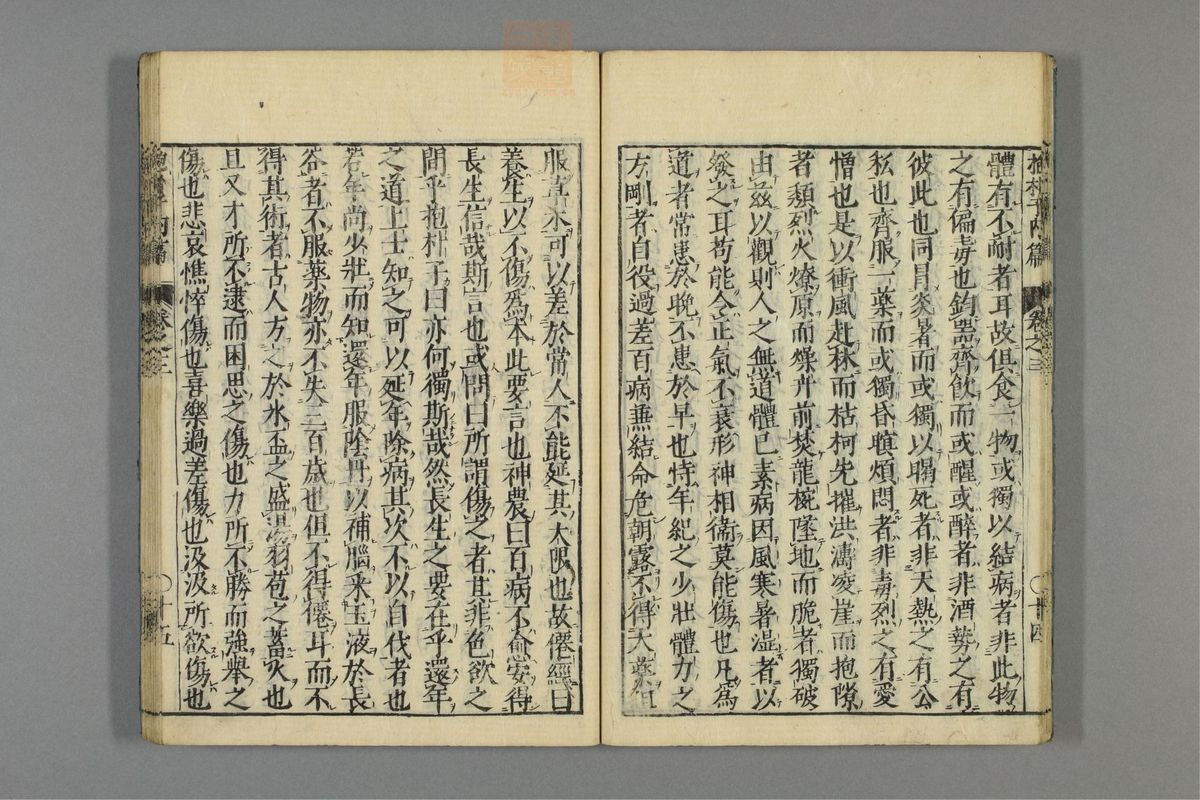 抱朴子内篇 卷之三 〇十四
體有不耐者耳故俱食一物或獨以結病者非此物
之有偏毒也鈞器齊飲而或醒或醉者非酒勢之有
彼此也同冒炎暑而或獨以暍死者非天熱之有公
私也齊服一藥而或獨昏瞑煩悶者非毒烈之有愛
憎也是以衝風赴林而枯柯先摧洪濤凌崖而拆隙
者頹烈火燎原而燥卉前焚龍椀墜地而脆者獨破
由茲以觀則人之無道體已素病因風寒暑濕者以
發之耳苟能令正氣不衰形神相衞莫能傷也凡為
道者常患於晚不患於早也恃年紀之少壯體力之
方剛者自役過差百病兼結命危朝露不得大藥但
服草木可以差於常人不能延其大限也故僊經曰
養生以不傷爲本此要言也神農曰百病不愈安得
長生信哉斯言也或問曰所謂傷之者其非色欲之
間乎抱朴子曰亦何獨斯哉然長生之要在乎還年
之道上士知之可以延年除病其次不以自伐者也
若年尚少壯而知還年服陰丹以補腦采玉液於長
谷者不服藥物亦不失三百歲也但不得僊耳而不
得其術者古人方之於氷盃之盛湯羽苞之蓄火也
且又才所不逮而困思之傷也力所不勝而強舉之
傷也悲哀憔悴傷也喜樂過差傷也汲汲所欲傷也
内篇 卷之三 〇十五